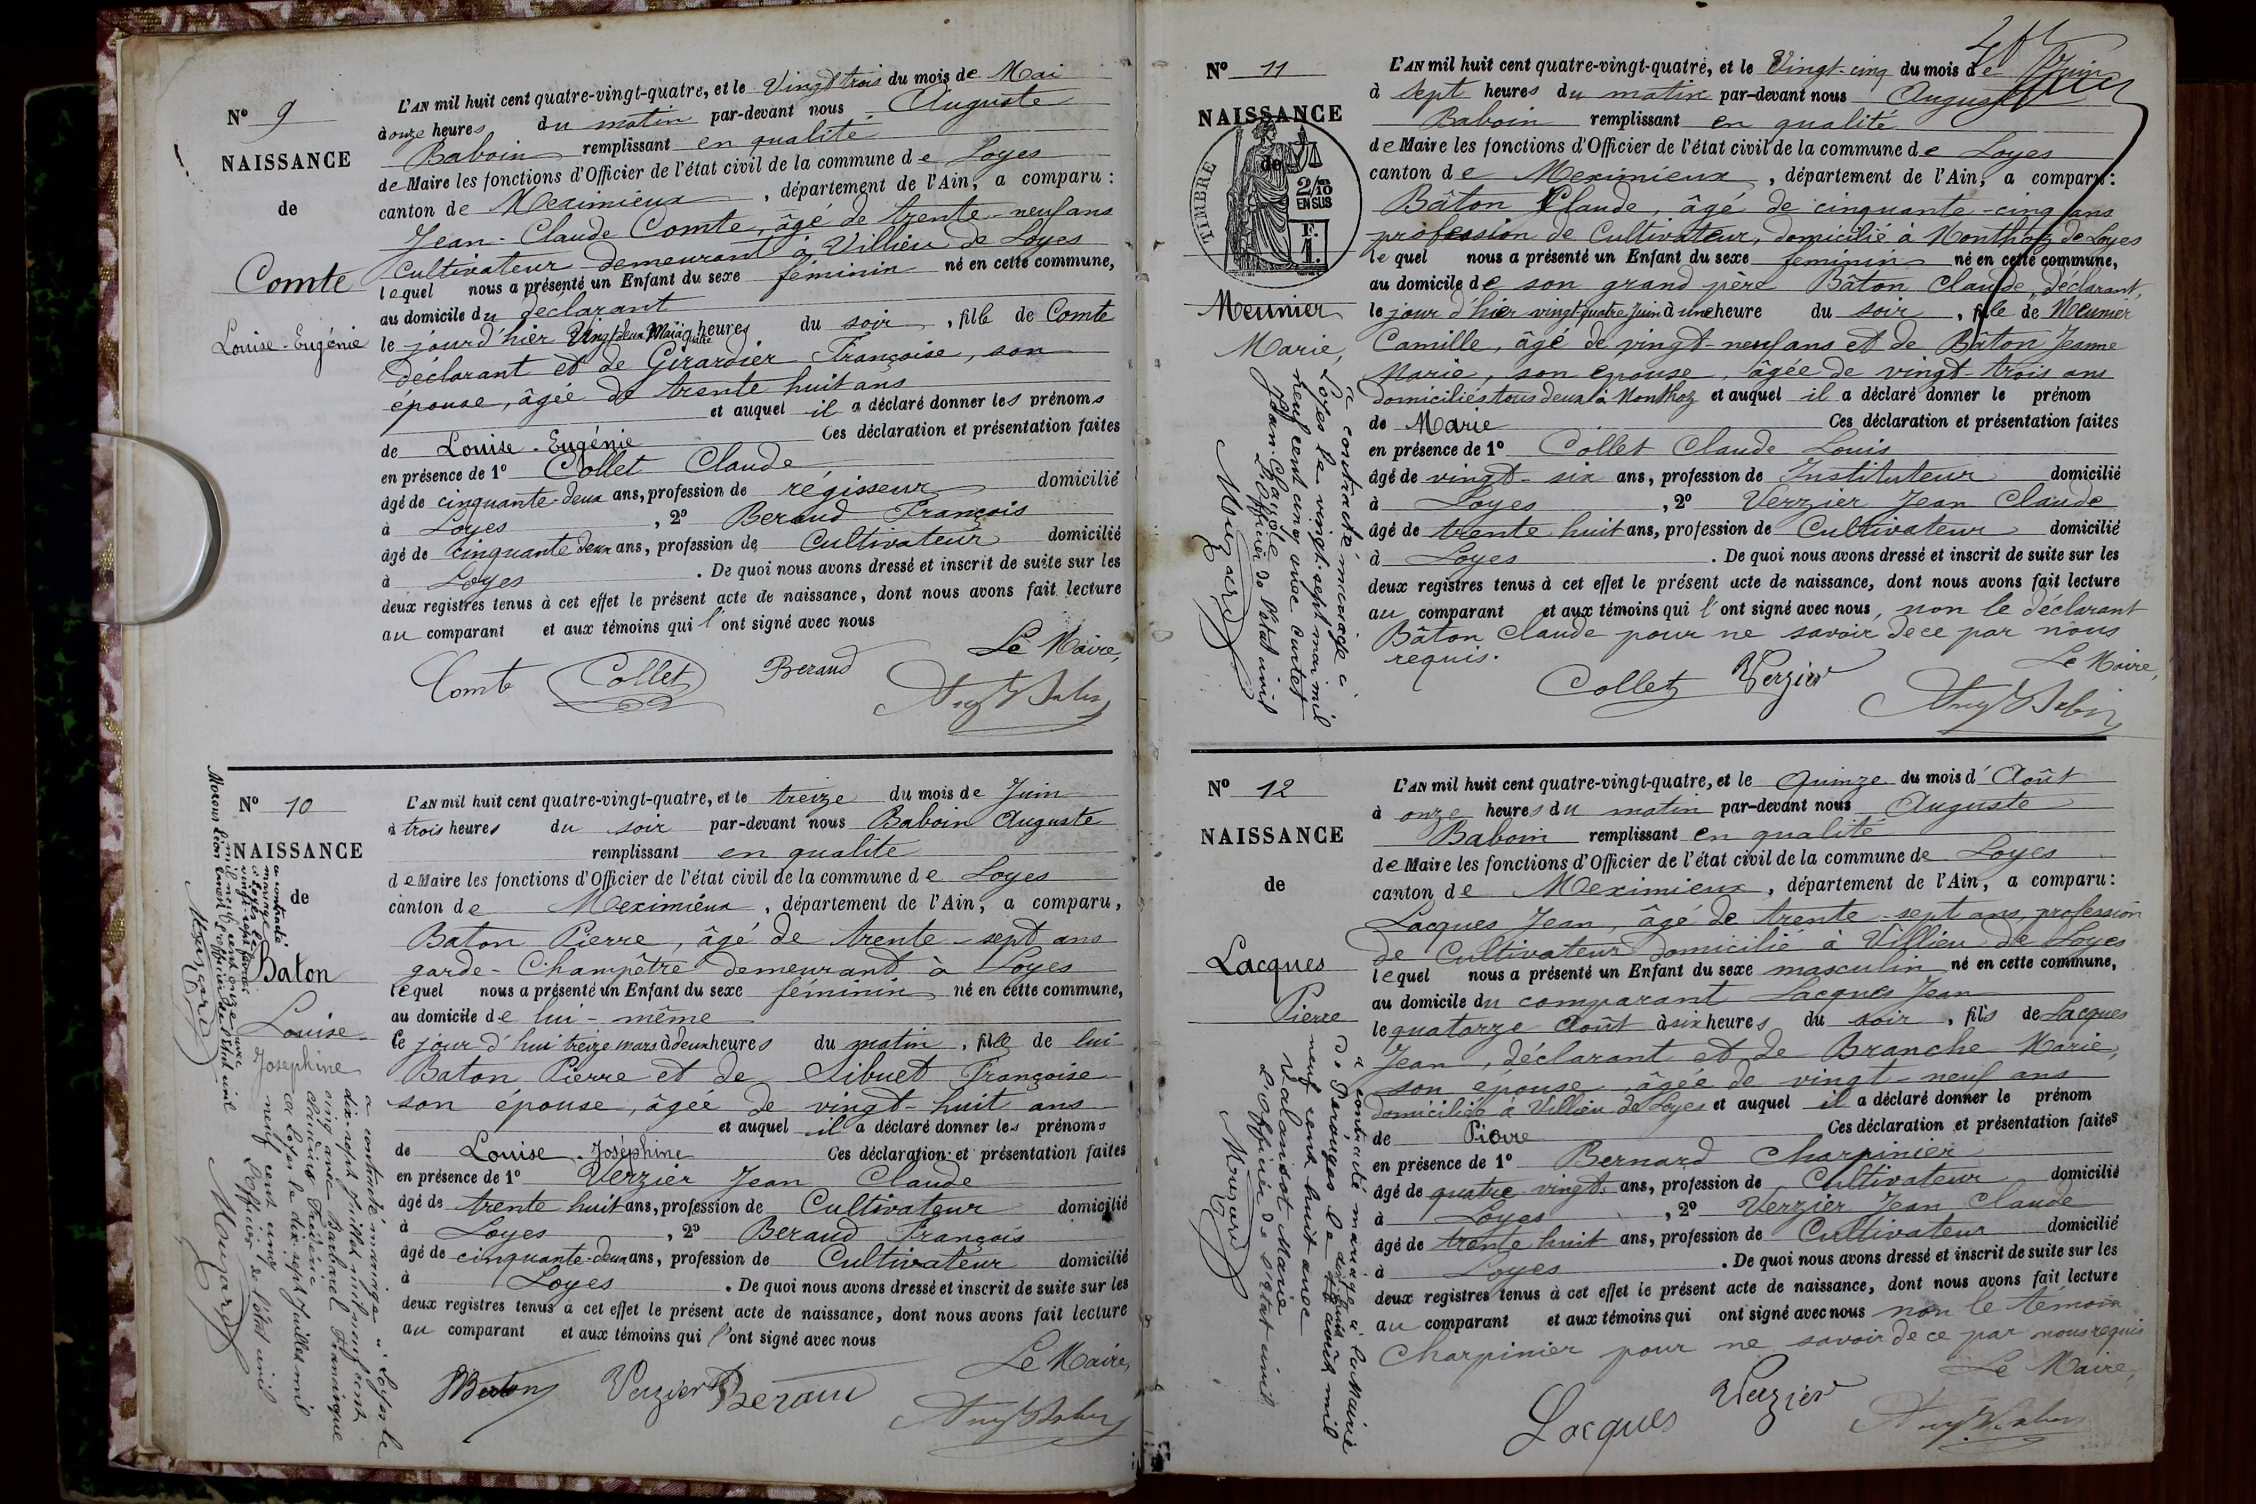 Nº 9
NAISSANCE
de
Comte
Louise-Eugénie
L'AN mil huit cent quatre-vingt-quatre, et le Vingt trois du mois de Mai
à onze heures du matin par-devant nous Auguste
Baboin remplissant en qualité
de Maire les fonctions d'Officier de l'état civil de la commune de Loyes
canton de Meximieux, département de l'Ain, a comparu :
Jean-Claude Comte, âgé de trente-neuf ans
Cultivateur demeurant à Villieu de Loyes
lequel nous a présenté un Enfant du sexe féminin né en cette commune,
au domicile du déclarant
le jour d'hier Vingt deux Mai à quatre heures du soir, fille de Comte
déclarant et de Girardier Françoise, son
épouse, âgée de trente huit ans
et auquel il a déclaré donner les prénoms
de Louise-Eugénie Ces déclaration et présentation faites
en présence de 1º Collet Claude
âgé de cinquante-deux ans, profession de régisseur domicilié
à Loyes, 2º Beraud François
âgé de cinquante deux ans, profession de Cultivateur domicilié
à Loyes. De quoi nous avons dressé et inscrit de suite sur les
deux registres tenus à cet effet le présent acte de naissance, dont nous avons fait lecture
au comparant et aux témoins qui l'ont signé avec nous
Le Maire,
Comte Collet Beraud
Nº 10
NAISSANCE
de
Baton
Louise-
Joséphine
a contracté
mariage
à Loyes le
vingt-sept
mil neuf cent onze avec
Moreux Léon l'officier de l'état civil
Mouzard
a contracté mariage à Loyes le
dix-sept juillet mil neuf cent
cinq avec Barbarel Francisque
Frédéric
à Loyes le dix-sept Juillet mil
neuf cent cinq
L'officier de l'état civil
Mouzard
L'AN mil huit cent quatre-vingt-quatre, et le treize du mois de Juin
à trois heures du soir par-devant nous Baboin Auguste
remplissant en qualité
de Maire les fonctions d'Officier de l'état civil de la commune de Loyes
canton de Meximieux, département de l'Ain, a comparu,
Baton Pierre, âgé de trente-sept ans
garde-Champêtre demeurant à Loyes
lequel nous a présenté un Enfant du sexe féminin né en cette commune,
au domicile de lui-même
le jour d'hui treize mars à deux heures du matin, fille de lui-
Baton Pierre et de Sibuet Françoise
son épouse, âgée de vingt-huit ans
et auquel il a déclaré donner les prénoms
de Louise-Joséphine Ces déclaration et présentation faites
en présence de 1º Verzier Jean Claude
âgé de trente huit ans, profession de Cultivateur domicilié
à Loyes, 2º Beraud François
âgé de cinquante-deux ans, profession de Cultivateur domicilié
à Loyes. De quoi nous avons dressé et inscrit de suite sur les
deux registres tenus à cet effet le présent acte de naissance, dont nous avons fait lecture
au comparant et aux témoins qui l'ont signé avec nous
Le Maire,
Baton Verzier Beraud
Nº 11
NAISSANCE
de
TIMBRE
2/10
EN SUS
F.
1.
Meunier
Marie,
a contracté mariage à
Loyes le vingt-sept mai mil
neuf cent cinq avec Curtet
Jean-Claude
L'officier de l'état civil
Mouzard
L'AN mil huit cent quatre-vingt-quatre, et le Vingt-cinq du mois de Juin
à sept heures du matin par-devant nous Auguste
Baboin remplissant en qualité
de Maire les fonctions d'Officier de l'état civil de la commune de Loyes
canton de Meximieux, département de l'Ain, a comparu :
Bâton Claude, âgé de cinquante-cinq ans
profession de Cultivateur, domicilié à Monthoz de Loyes
lequel nous a présenté un Enfant du sexe féminin né en cette commune,
au domicile de son grand père Bâton Claude, déclarant,
le jour d'hier vingt quatre Juin à une heure du soir, fille de Meunier
Camille, âgé de vingt-neuf ans et de Bâton Jeanne
Marie, son épouse, âgée de vingt-trois ans
domiciliés tous deux à Monthoz et auquel il a déclaré donner le prénom
de Marie Ces déclaration et présentation faites
en présence de 1º Collet Claude Louis
âgé de vingt-six ans, profession de Instituteur domicilié
à Loyes, 2º Verzier Jean Claude
âgé de trente huit ans, profession de Cultivateur domicilié
à Loyes. De quoi nous avons dressé et inscrit de suite sur les
deux registres tenus à cet effet le présent acte de naissance, dont nous avons fait lecture
au comparant et aux témoins qui l'ont signé avec nous, non le déclarant
Bâton Claude pour ne savoir de ce par nous
requis.
Le Maire,
Collet Verzier
Nº 12
NAISSANCE
de
Lacques
Pierre
a contracté mariage à la Mairie
de Pérouges le dix huit août mil
neuf cent huit avec
Valansot Marie
L'officier de l'état civil
Mouzard
L'AN mil huit cent quatre-vingt-quatre, et le Quinze du mois d'Août
à onze heures du matin par-devant nous Auguste
Baboin remplissant en qualité
de Maire les fonctions d'Officier de l'état civil de la commune de Loyes
canton de Meximieux, département de l'Ain, a comparu :
Lacques Jean, âgé de trente-sept ans, profession
de Cultivateur domicilié à Villieu de Loyes
lequel nous a présenté un Enfant du sexe masculin né en cette commune,
au domicile du comparant Lacques Jean
le quatorze Août à six heures du soir, fils de Lacques
Jean, déclarant et de Branche Marie,
son épouse, âgée de vingt-neuf ans
domiciliée à Villieu de Loyes et auquel il a déclaré donner le prénom
de Pierre Ces déclaration et présentation faites
en présence de 1º Bernard Charpinier
âgé de quatre vingt ans, profession de Cultivateur domicilié
à Loyes, 2º Verzier Jean Claude
âgé de trente huit ans, profession de Cultivateur domicilié
à Loyes. De quoi nous avons dressé et inscrit de suite sur les
deux registres tenus à cet effet le présent acte de naissance, dont nous avons fait lecture
au comparant et aux témoins qui ont signé avec nous non le témoin
Charpinier pour ne savoir de ce par nous requis
Le Maire,
Lacques Verzier